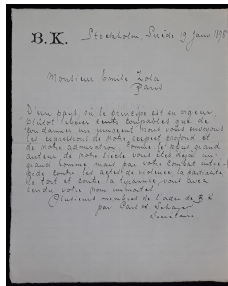 B. K.
Stockholm, Suède 19 Janv 1898
Monsieur Emile Zola
Paris
D'un pays, où le principe est en vigeur,
plutôt libérer cents coupables que de
condamner un innocent nous vous envoyons
les expressions de notre respect profond et
de notre admiration. Comme le plus grand
auteur de notre siècle vous êtes déjà un
grand homme mais par votre combat intré-
pide contre les actes de violence, la partialité
de tout et contre la tyrannie, vous avez
rendu votre nom immortel.
Plusieurs membres de l'ordre de B K
par Carl
Secrétaire